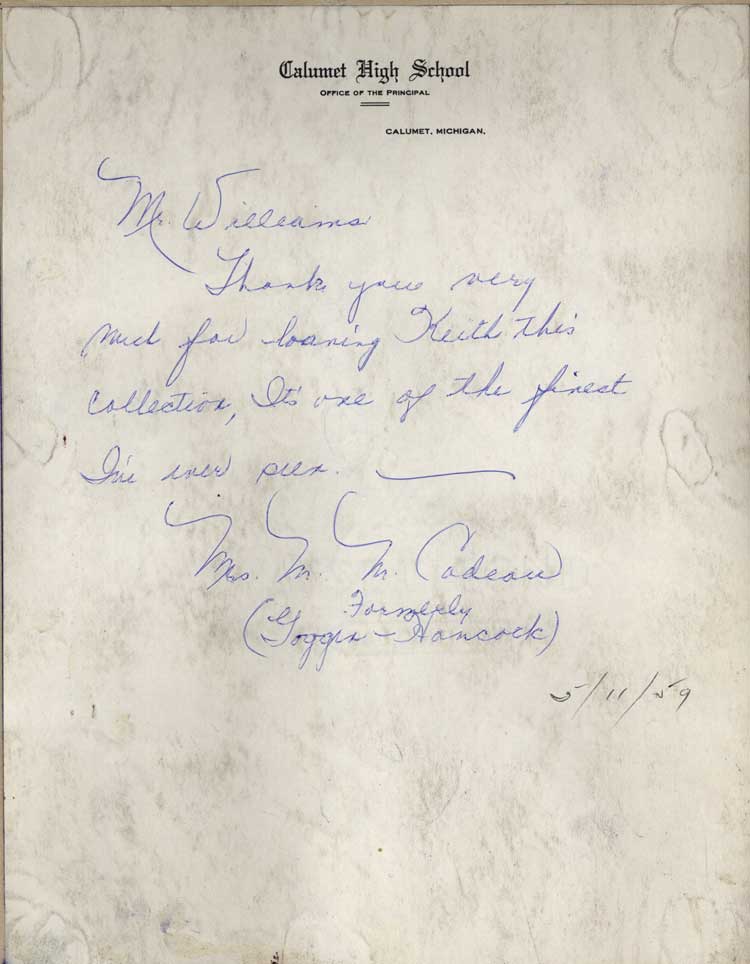 Calumet High School
OFFICE OF THE PRINCIPAL
CALUMET, MICHIGAN.
Mr. Williams
Thank you very
much for loaning Keith this
collection, It's one of the finest
I've ever seen.
Mrs. M. M. Cadeau
Formerly
(Goggin - Hancock)
5/11/59